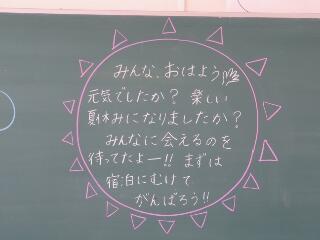 みんな、おはよう
元気でしたか？ 楽しい
夏休みになりましたか？
みんなに会えるのを
待ってたよー!! まずは
宿泊にむけて
がんばろう!!